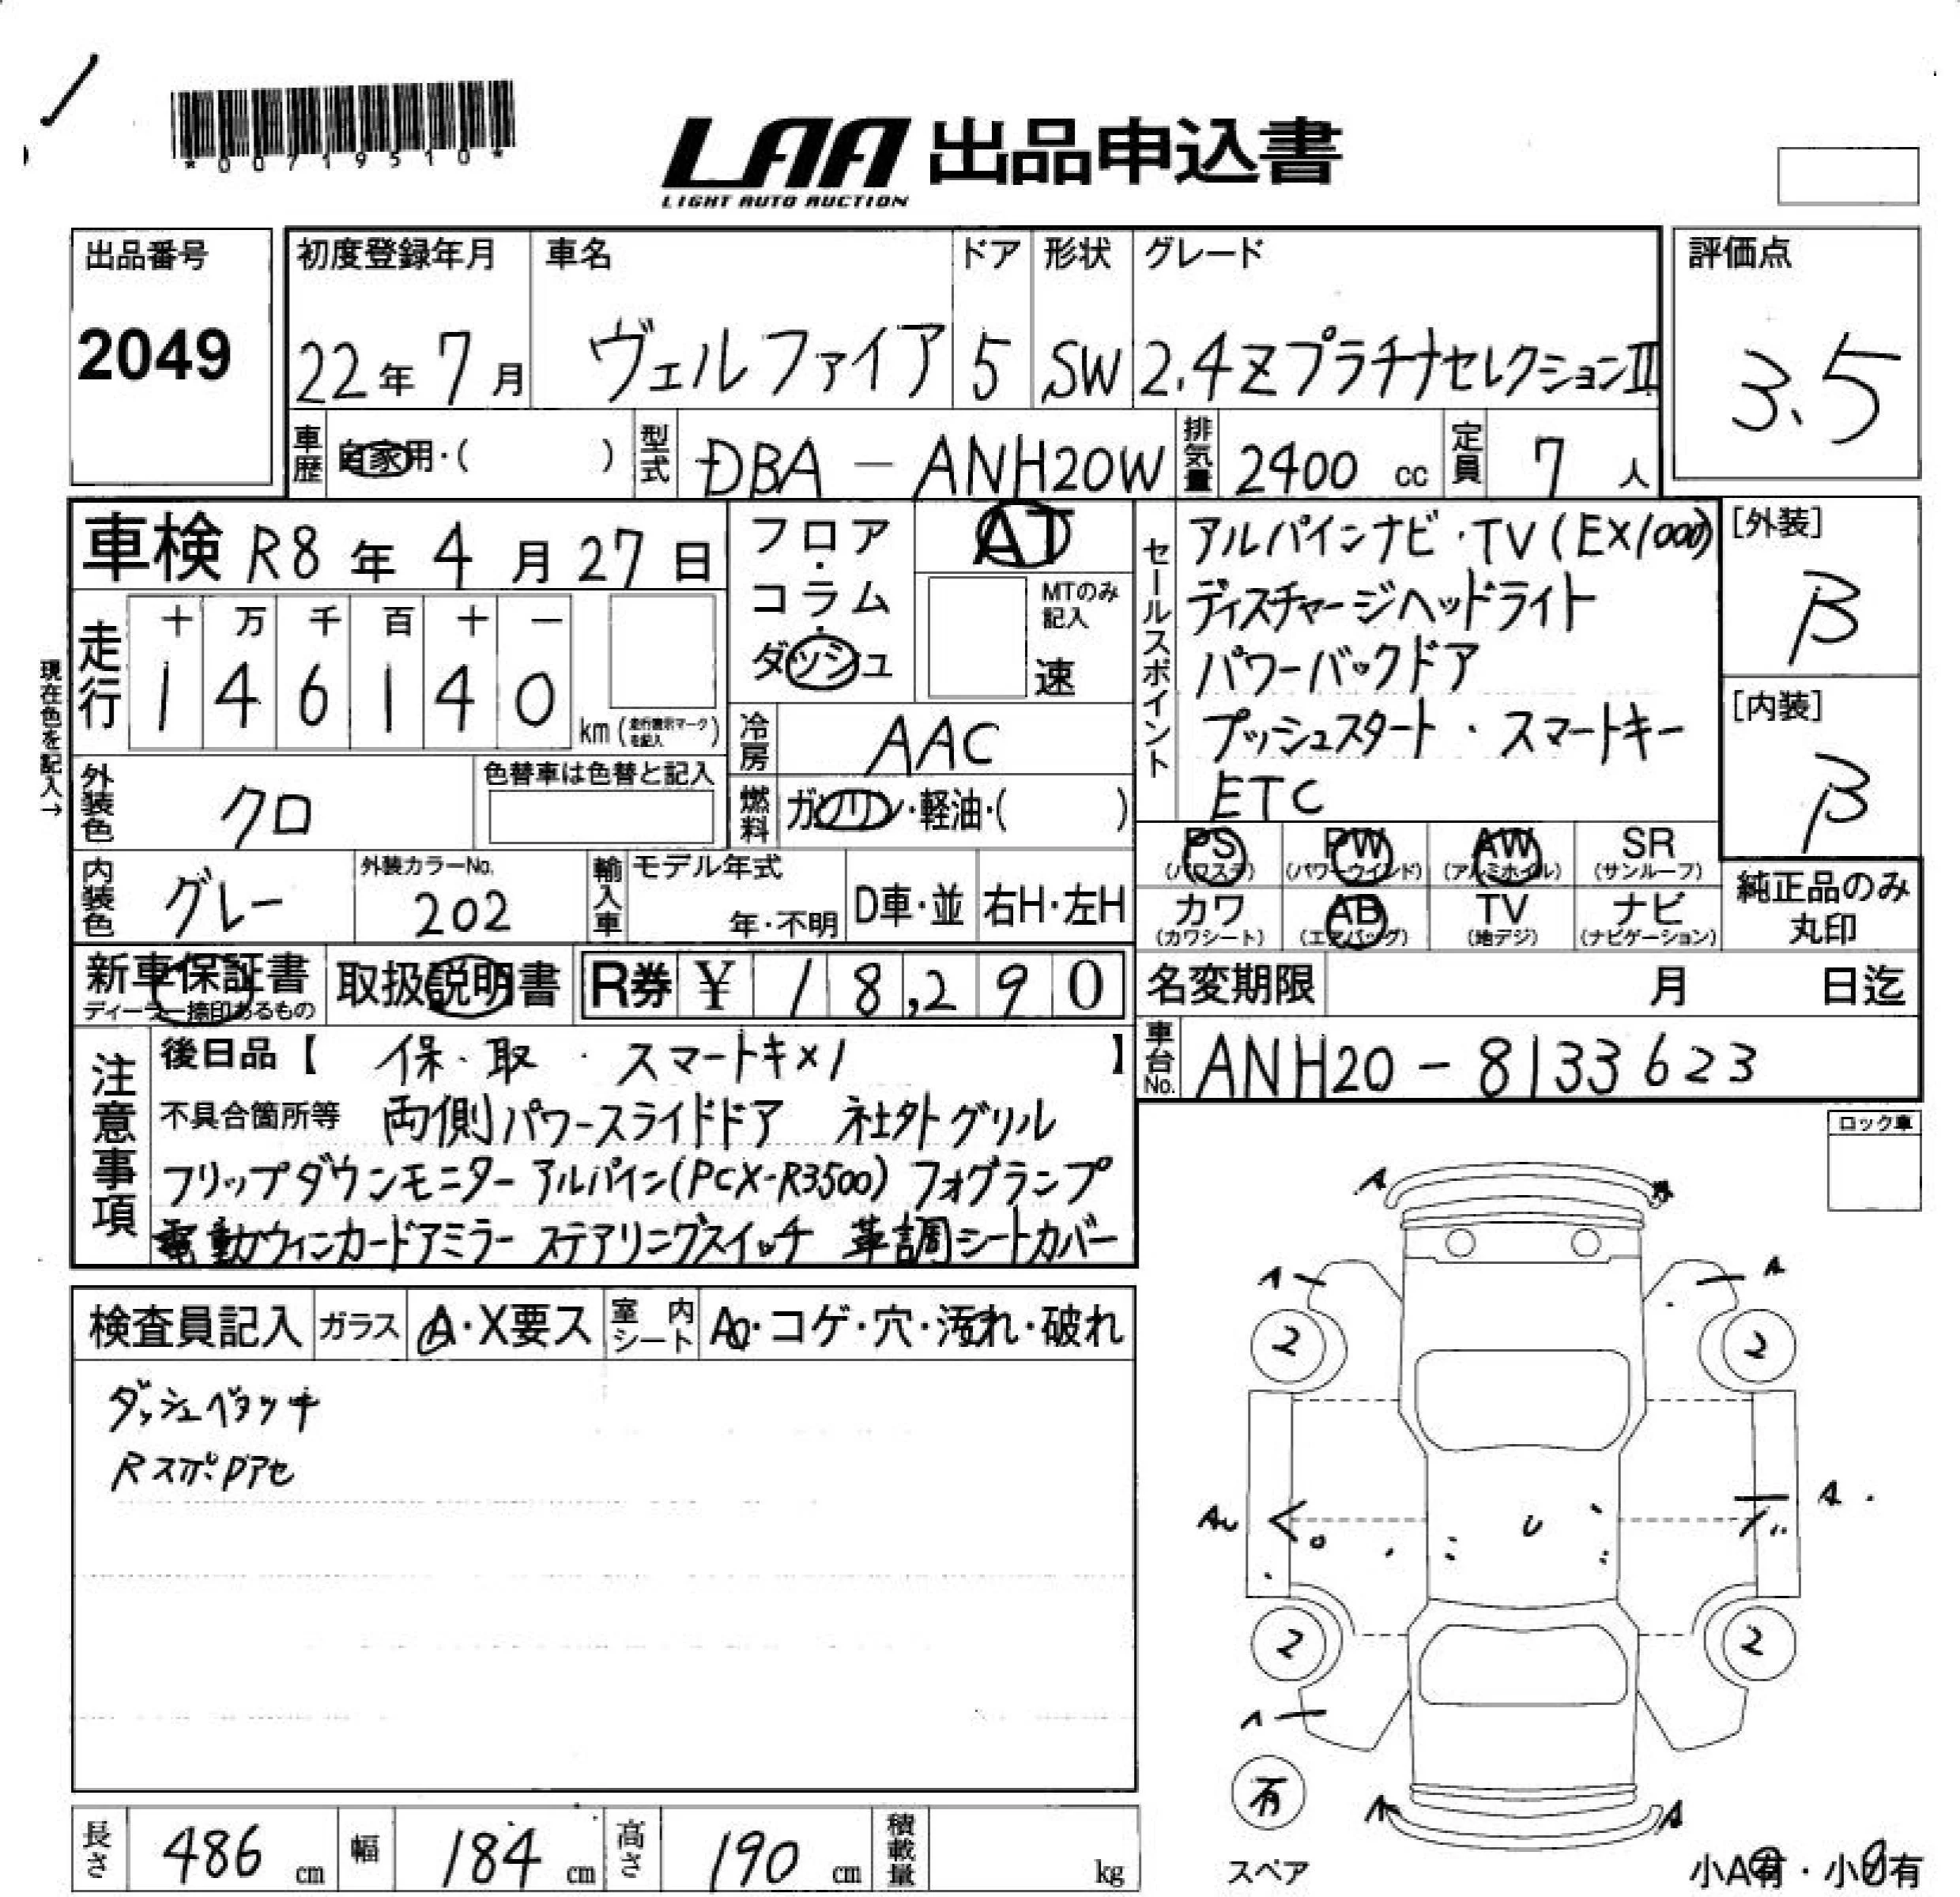 *00719510*
LAA 出品申込書
LIGHT AUTO AUCTION
出品番号
2049
初度登録年月 車名 ドア 形状 グレード
22年 7月 ヴェルファイア 5 SW 2.4Zプラチナセレクション II
評価点
3.5
車歴 自家用・( ) 型式 DBA - ANH20W 排気量 2400 cc 定員 7 人
車検 R8 年 4 月 27 日
フロア・コラム・ダッシュ
AT
MTのみ記入
速
現在色を記入→
走行
十 万 千 百 十 一
1 4 6 1 4 0
km(走行表示マークを記入)
冷房 AAC
燃料 ガソリン・軽油・( )
外装色 クロ
色替車は色替と記入
内装色 グレー
外装カラーNo.
202
輸入車 モデル年式
年・不明 D車・並 右H・左H
セールスポイント
アルパインナビ・TV(EX1000)
ディスチャージヘッドライト
パワーバックドア
プッシュスタート・スマートキー
ETC
[外装]
β
[内装]
β
PS (パワステ) PW (パワーウインド) AW (アルミホイル) SR (サンルーフ)
カワ (カワシート) AB (エアバッグ) TV (地デジ) ナビ (ナビゲーション)
純正品のみ
丸印
新車保証書
ディーラー捺印あるもの
取扱説明書
R券 ¥ 18,290
名変期限 月 日迄
車台No. ANH20-8133623
注意事項
後日品【 保・取・スマートキ×1 】
不具合箇所等 両側パワースライドドア 社外グリル
フリップダウンモニターアルパイン(PCX-R3500) フォグランプ
電動ウィンカードアミラー ステアリングスイッチ 革調シートカバー
ロック車
検査員記入 ガラス A・X要ス 室内シート Ac・コゲ・穴・汚れ・破れ
ダッシュベタツキ
RスポDアセ
A
A
A
2
2
A
2
2
有
スペア
A
A
長さ 486 cm 幅 184 cm 高さ 190 cm 積載量 kg
小A有・小U有